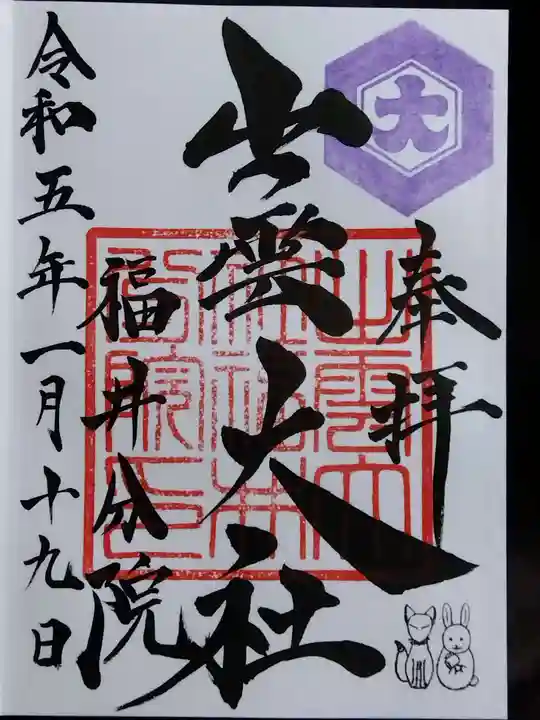 大
奉拝
出雲大社
福井分院
令和五年一月十九日
出雲大
社福井
分院之印